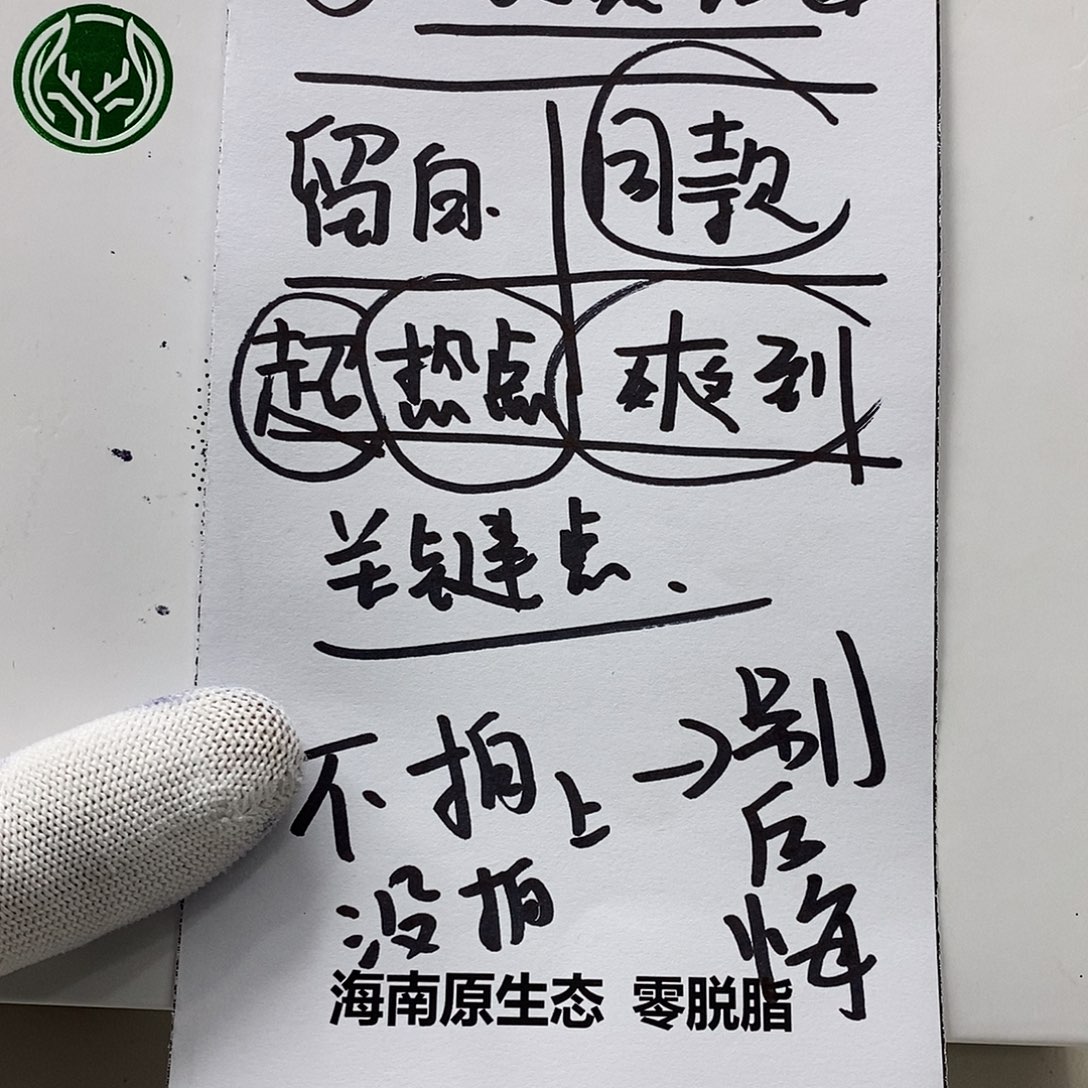 留自. 同款
起 热点 爽到
关键点.
不拍上 → 别后悔
没拍
海南原生态 零脱脂